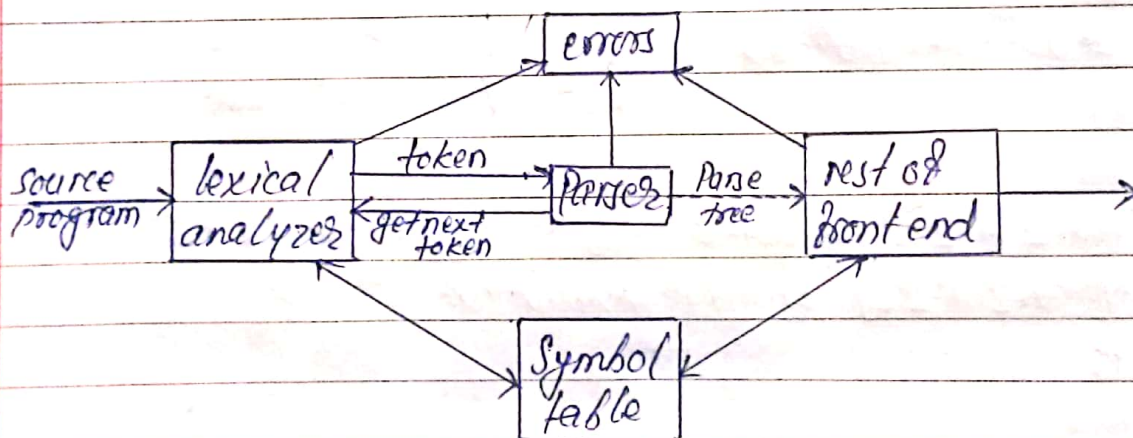 errors
source
program
lexical
analyzer
token
getnext
token
Parser
Parse
tree
rest of
frontend
Symbol
table